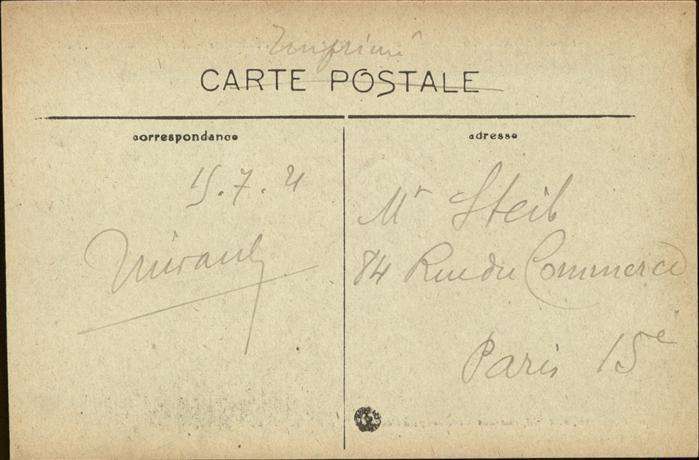 Imprimé
CARTE POSTALE
correspondance
adresse
15.7.21
Mr Steib
84 Rue du Commerce
Paris 15e